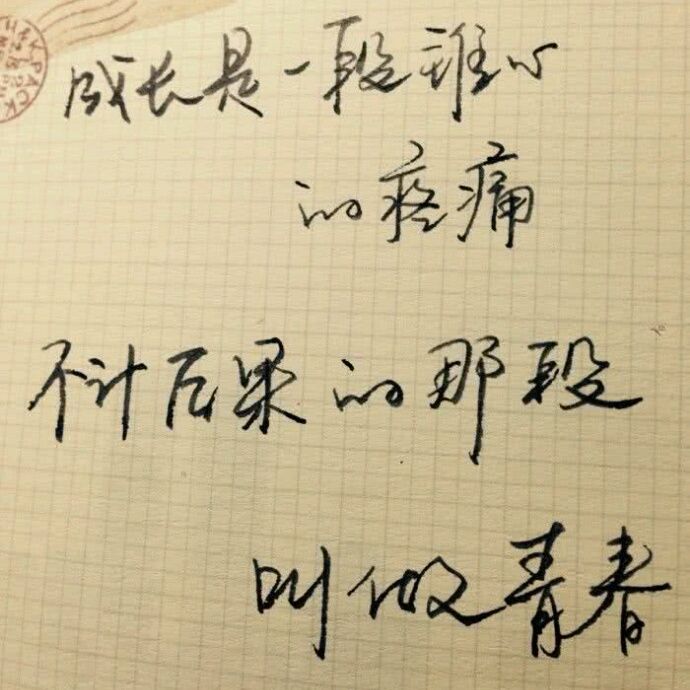 KPACK
成长是一段心
的疼痛
不计后果的那段
叫做青春